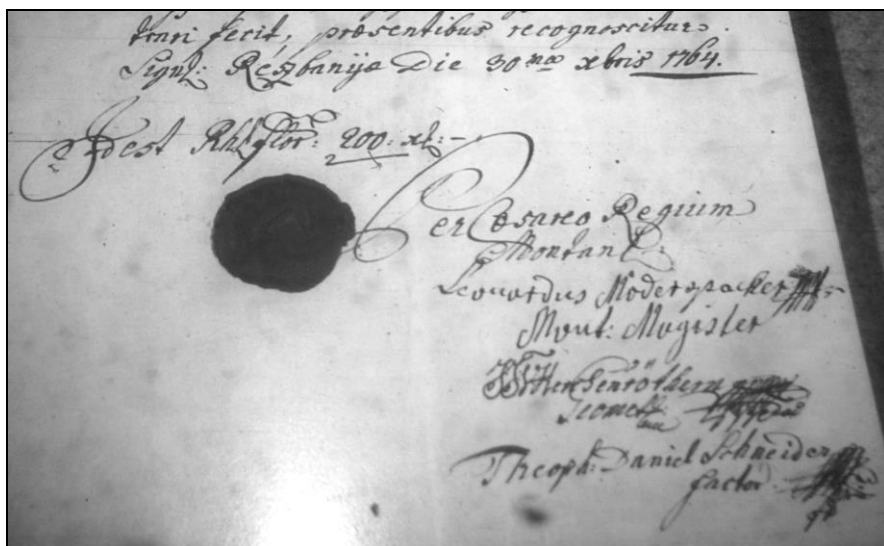 trari fecit, præsentibus recognoscitur.
Signl: Rèszbanijæ Die 30ma xbris 1764.
Idest Rhl flor: 200: xl: –
Per Cæsareo Regium
Montanl:
Leonardus Moderspacher
Mont: Magister
Theoph: Daniel Schneider
factor